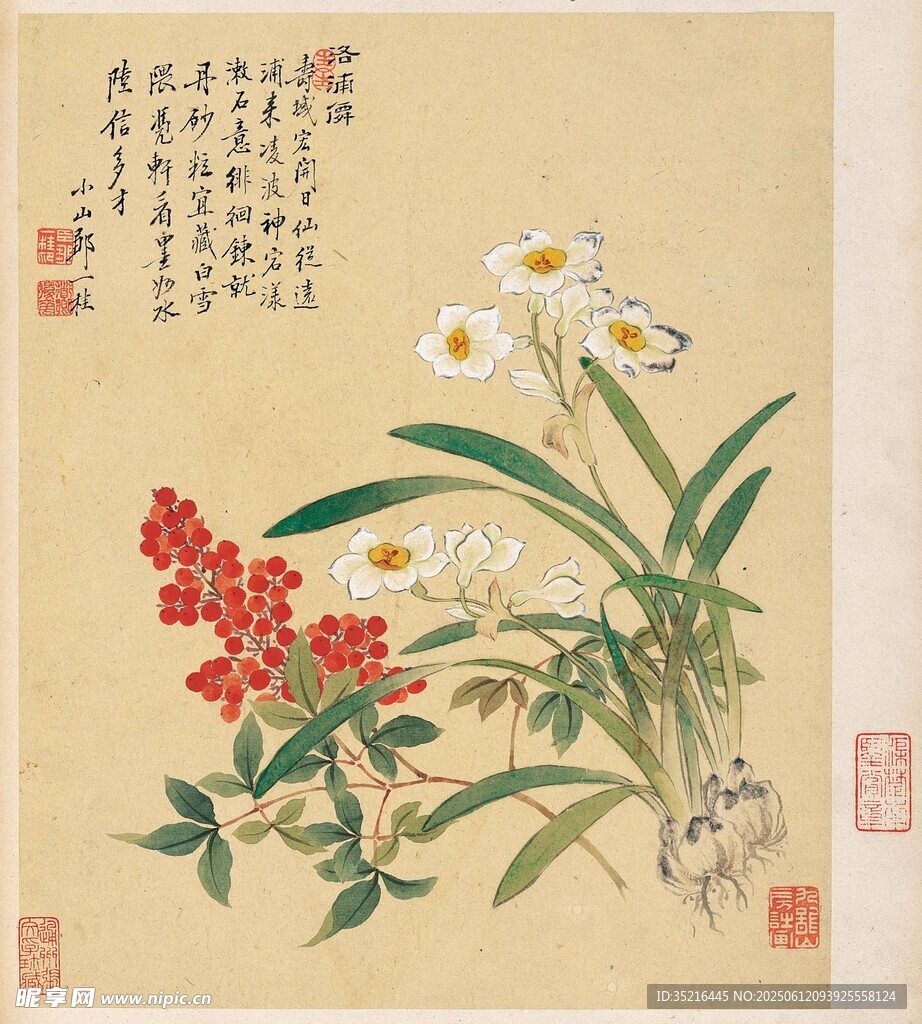 洛浦僊
壽域宏開日仙從遠
浦来凌波神宕漾
漱石意徘徊鍊就
丹砂粒宜藏白雪
隈凴軒看畫妙水
陸信多才
小山鄒一桂
昵享网 www.nipic.cn
ID:35216445 NO:20250612093925558124